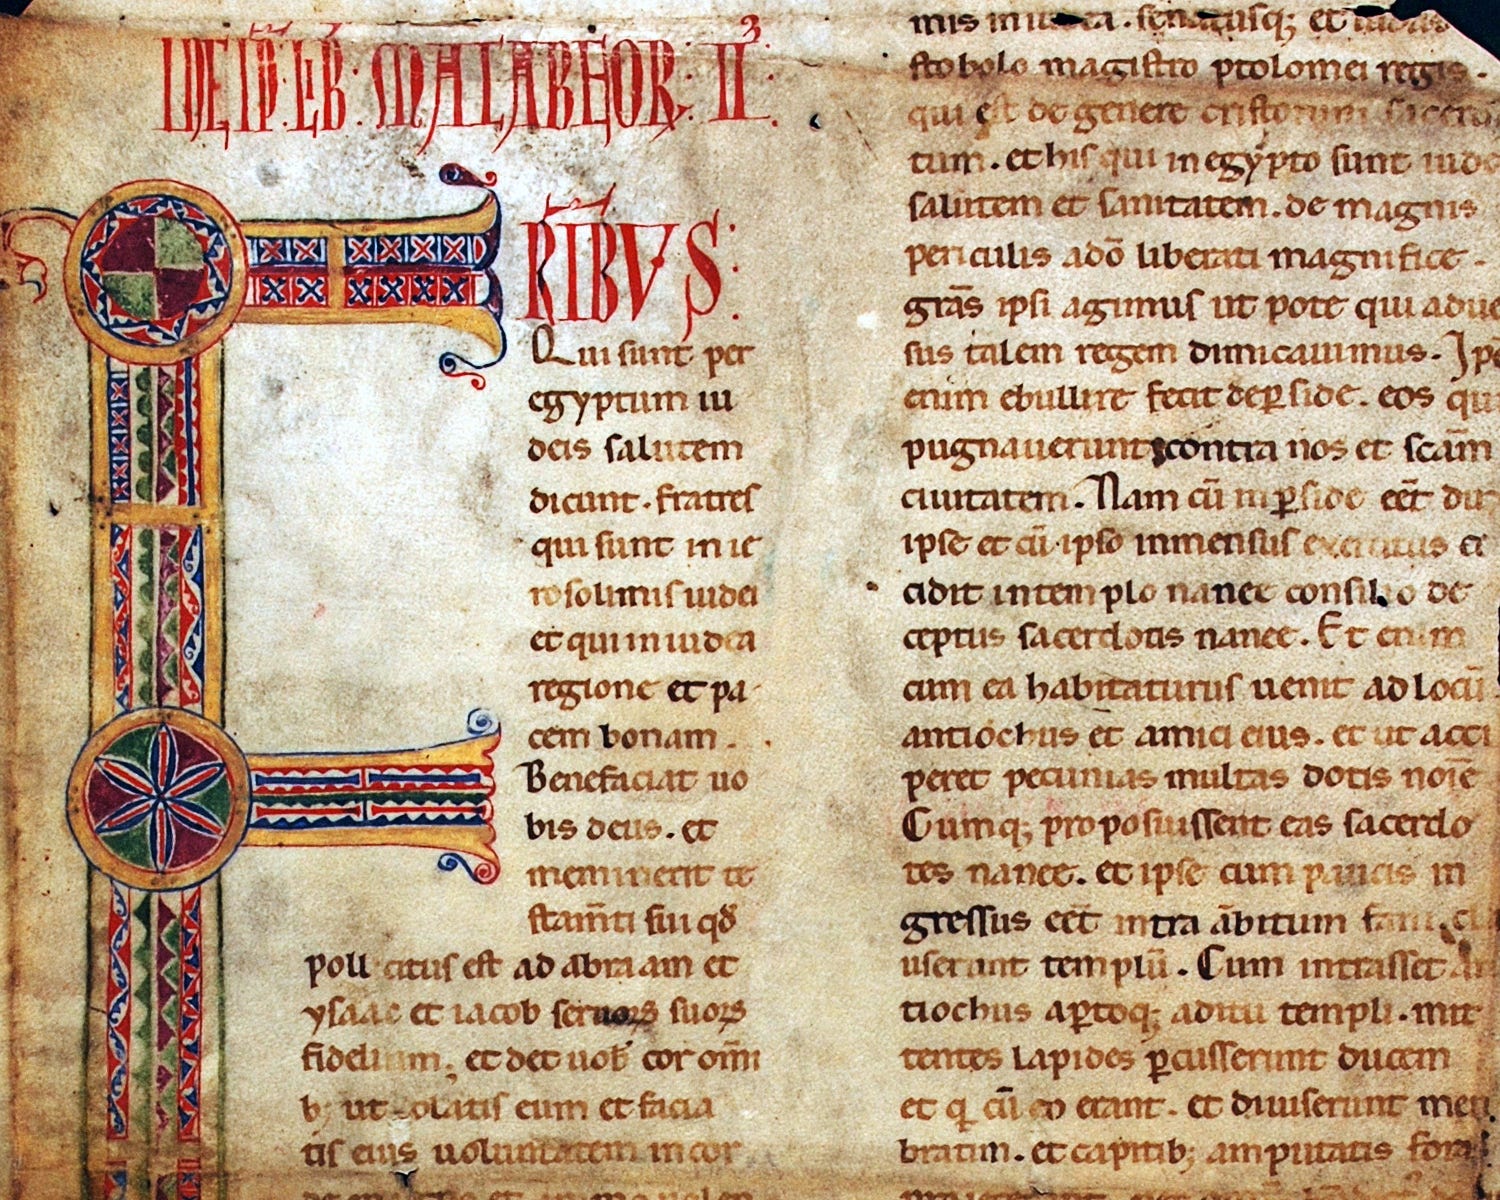 INCIPIT LIB̅ MACHABEOR: II:
F
RIBVS:
Qui sunt per
egyptum iu
deis salutem
dicunt · fratres
qui sunt in ie
rosolimis iudei
et qui in iudea
regione et pa
cem bonam ·
Benefaciat uo
bis deus · et
meminerit te
stam̅ti sui qđ
pollicitus est ad abraam et
ysaac et iacob seruoꝝ suoꝝ
fidelium; et det uob̅ cor om̅i
bꝫ ut colatis eum et facia
tis eius uoluntatem in cor
senatusqꝫ et iudas
stobolo magistro ptolomei regis ·
qui est de genere cristorum sacerdo
tum · et his qui in egypto sunt iude
salutem et sanitatem · de magnis
periculis a do̅ liberati magnifice ·
gra̅s ipsi agimus ut pote qui aduer
sus talem regem dimicauimus · Ipse
enim ebullire fecit de ꝑside · eos qui
pugnauerunt contra nos et sca̅m
ciuitatem · Nam cu̅ in ꝑside ee̅t dux
ipse et cu̅ ipso inmensus exercitus ce
cidit in templo nanee consilio de
ceptus sacerdotis nanee · Et enim
cum ea habitaturus uenit ad locu̅
antiochus et amici eius · et ut acci
peret pecunias multas dotis noi̅e
Cumqꝫ proposuissent eas sacerdo
tes nanee · et ipse cum paucis in
gressus ee̅t intra a̅bitum fani · cla
userunt templu̅ · Cum intrasset an
tiochus aꝑtoqꝫ aditu templi · mit
tentes lapides ꝑcusserunt ducem
et q cu̅ eo erant · et diuiserunt mem
bratim · et capitibꝫ amputatis foras